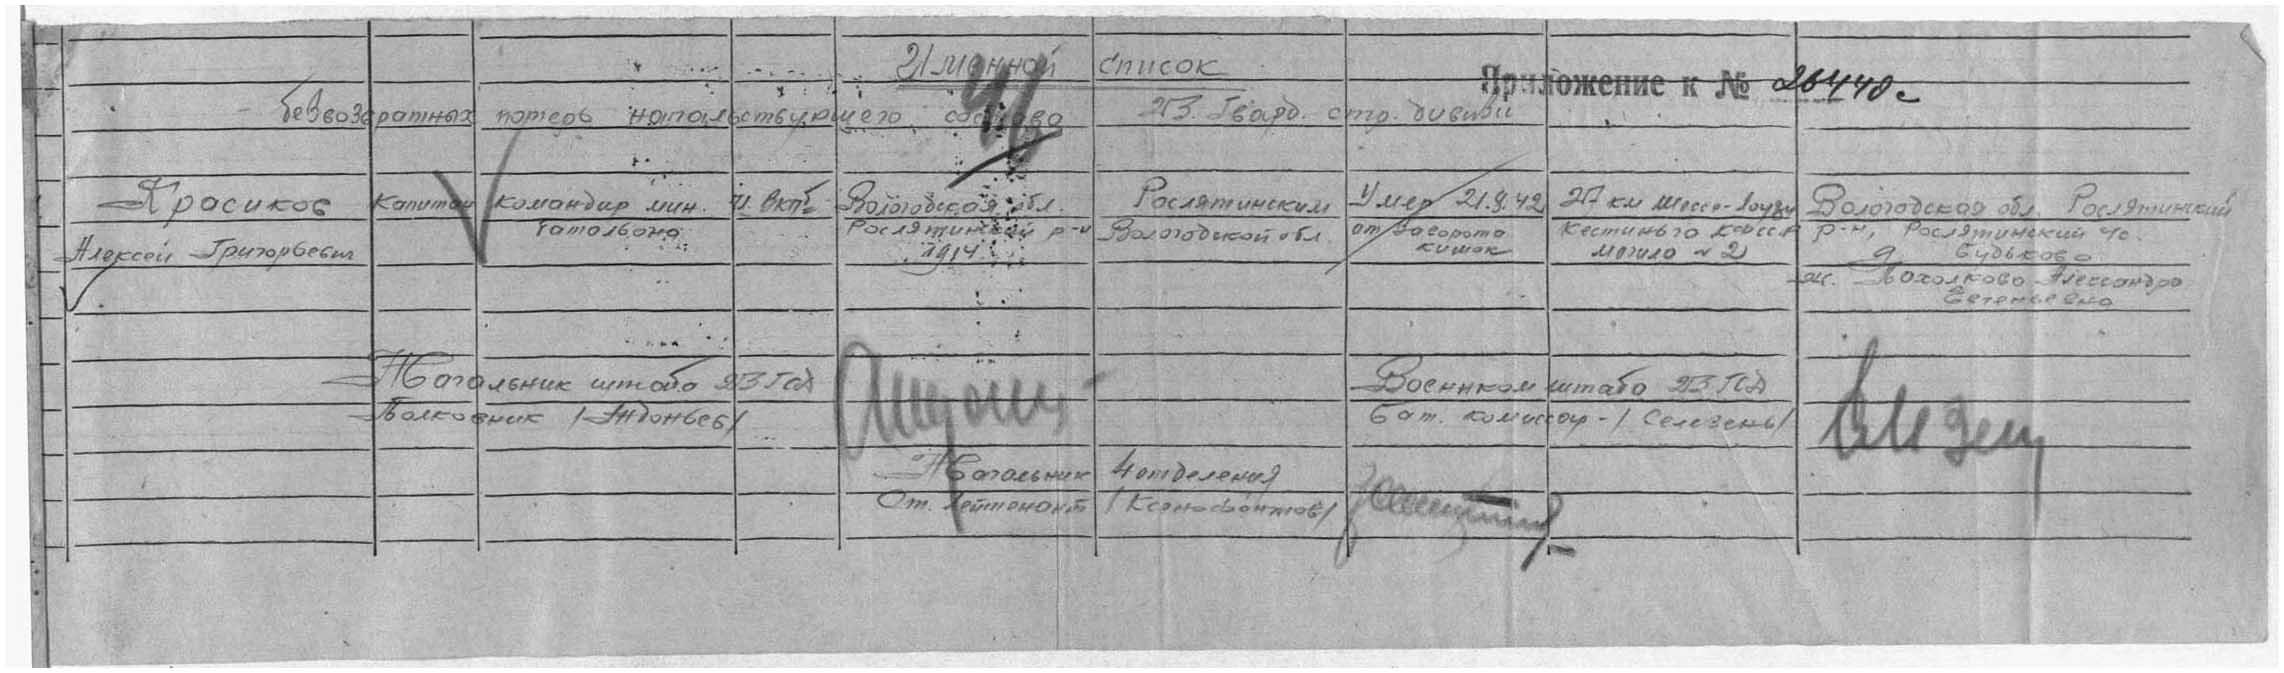 Именной список
Приложение к № 26440с
безвозвратных потерь начальствующего состава 23 Гвард. стр. дивизии
46
Красиков
Алексей Григорьевич
капитан
командир мин.
батальона
чл. ВКПб
Вологодская обл.
Рослятинский р-н
1914
Рослятинским
Вологодской обл.
Умер 21.9.42
от заворота
кишок
27 км шоссе-Лоухи
Кестеньга
могила № 2
Вологодская обл. Рослятинский
р-н, Рослятинский чс.
д. Будьково
ж. Александра
Начальник штаба 23 ГСД
Полковник
Военком штаба 23 ГСД
Бат. комиссар - /Селезень/
Начальник 4 отделения
Ст. лейтенант /Ксенофонтов/